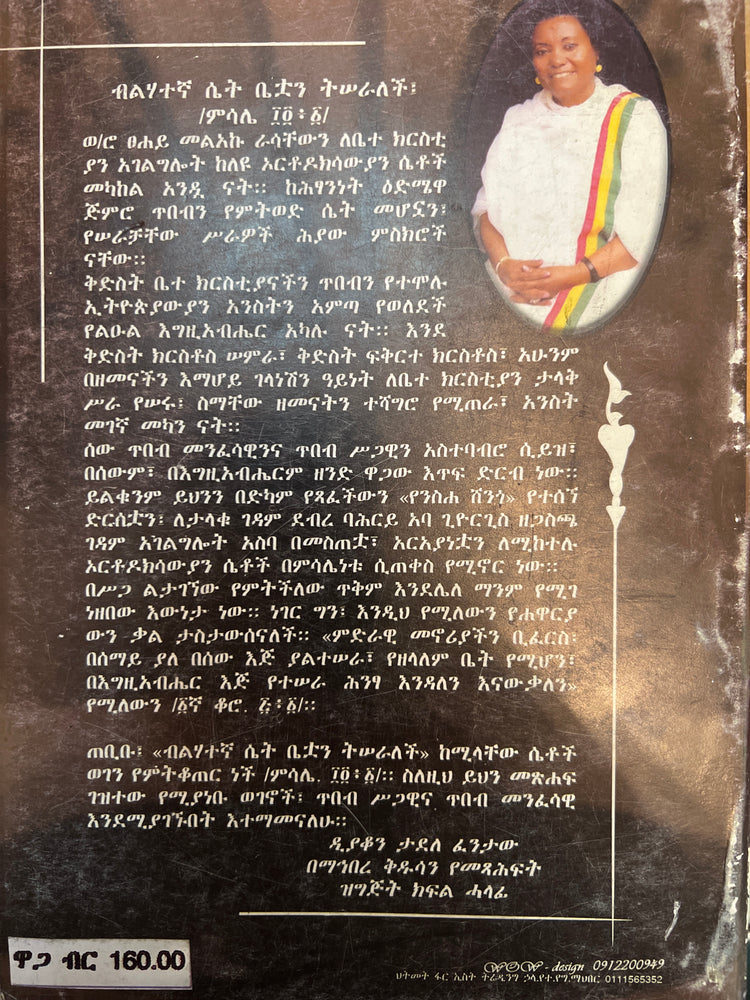 ብልሃተኛ ሴት ቤቷን ትሠራለች፤
/ምሳሌ ፲፬፥፩/
ወ/ሮ ፀሐይ መልአኩ ራሳቸውን ለቤተ ክርስቲ
ያን አገልግሎት ከለዩ ኦርቶዶክሳውያን ሴቶች
መካከል አንዷ ናት። ከሕፃንነት ዕድሜዋ
ጅምሮ ጥበብን የምትወድ ሴት መሆኗን፤
የሠራቻቸው ሥራዎች ሕያው ምስክሮች
ናቸው።
ቅድስት ቤተ ክርስቲያናችን ጥበብን የተሞሉ
ኢትዮጵያውያን አንስትን አምጣ የወለደች
የልዑል እግዚአብሔር አካሉ ናት። እንደ
ቅድስት ክርስቶስ ሠምራ፣ ቅድስት ፍቅርተ ክርስቶስ፣ አሁንም
በዘመናችን እማሆይ ገላነሽን ዓይነት ለቤተ ክርስቲያን ታላቅ
ሥራ የሠሩ፤ ስማቸው ዘመናትን ተሻግሮ የሚጠራ፣ አንስት
መገኛ መካን ናት።
ሰው ጥበብ መንፈሳዊንና ጥበብ ሥጋዊን አስተባብሮ ሲይዝ፣
በሰውም፣ በእግዚአብሔርም ዘንድ ዋጋው እጥፍ ድርብ ነው።
ይልቁንም ይህንን በድካም የጻፈችውን «የንስሐ ሸንጎ» የተሰኘ
ድርሰቷን፤ ለታላቁ ገዳም ደብረ ባሕርይ አባ ጊዮርጊስ ዘጋስጫ
ገዳም አገልግሎት አስባ በመስጠቷ፣ አርአያነቷን ለሚከተሉ
ኦርቶዶክሳውያን ሴቶች በምሳሌነቱ ሲጠቀስ የሚኖር ነው።
በሥጋ ልታገኘው የምትችለው ጥቅም እንደሌለ ማንም የሚገ
ነዘበው እውነታ ነው። ነገር ግን፤ እንዲህ የሚለውን የሐዋርያ
ውን ቃል ታስታውሰናለች። «ምድራዊ መኖሪያችን ቢፈርስ፤
በሰማይ ያለ በሰው እጅ ያልተሠራ፣ የዘላለም ቤት የሚሆን፤
በእግዚአብሔር እጅ የተሠራ ሕንፃ እንዳለን እናውቃለን»
የሚለውን /፩ኛ ቆሮ. ፭፥፩/።
ጠቢቡ፤ «ብልሃተኛ ሴት ቤቷን ትሠራለች» ከሚላቸው ሴቶች
ወገን የምትቆጠር ነች /ምሳሌ. ፲፬፥፩/። ስለዚህ ይህን መጽሐፍ
ገዝተው የሚያነቡ ወገኖች፤ ጥበብ ሥጋዊና ጥበብ መንፈሳዊ
እንደሚያገኙበት እተማመናለሁ።
ዲያቆን ታደለ ፈንታው
በማኅበረ ቅዱሳን የመጻሕፍት
ዝግጅት ክፍል ሓላፊ
ዋጋ ብር 160.00
WOW - design 0912200949
ህትመት ፋር ኢስት ትሬዲንግ ኃላ.የተ.የግ.ማህበር 0111565352